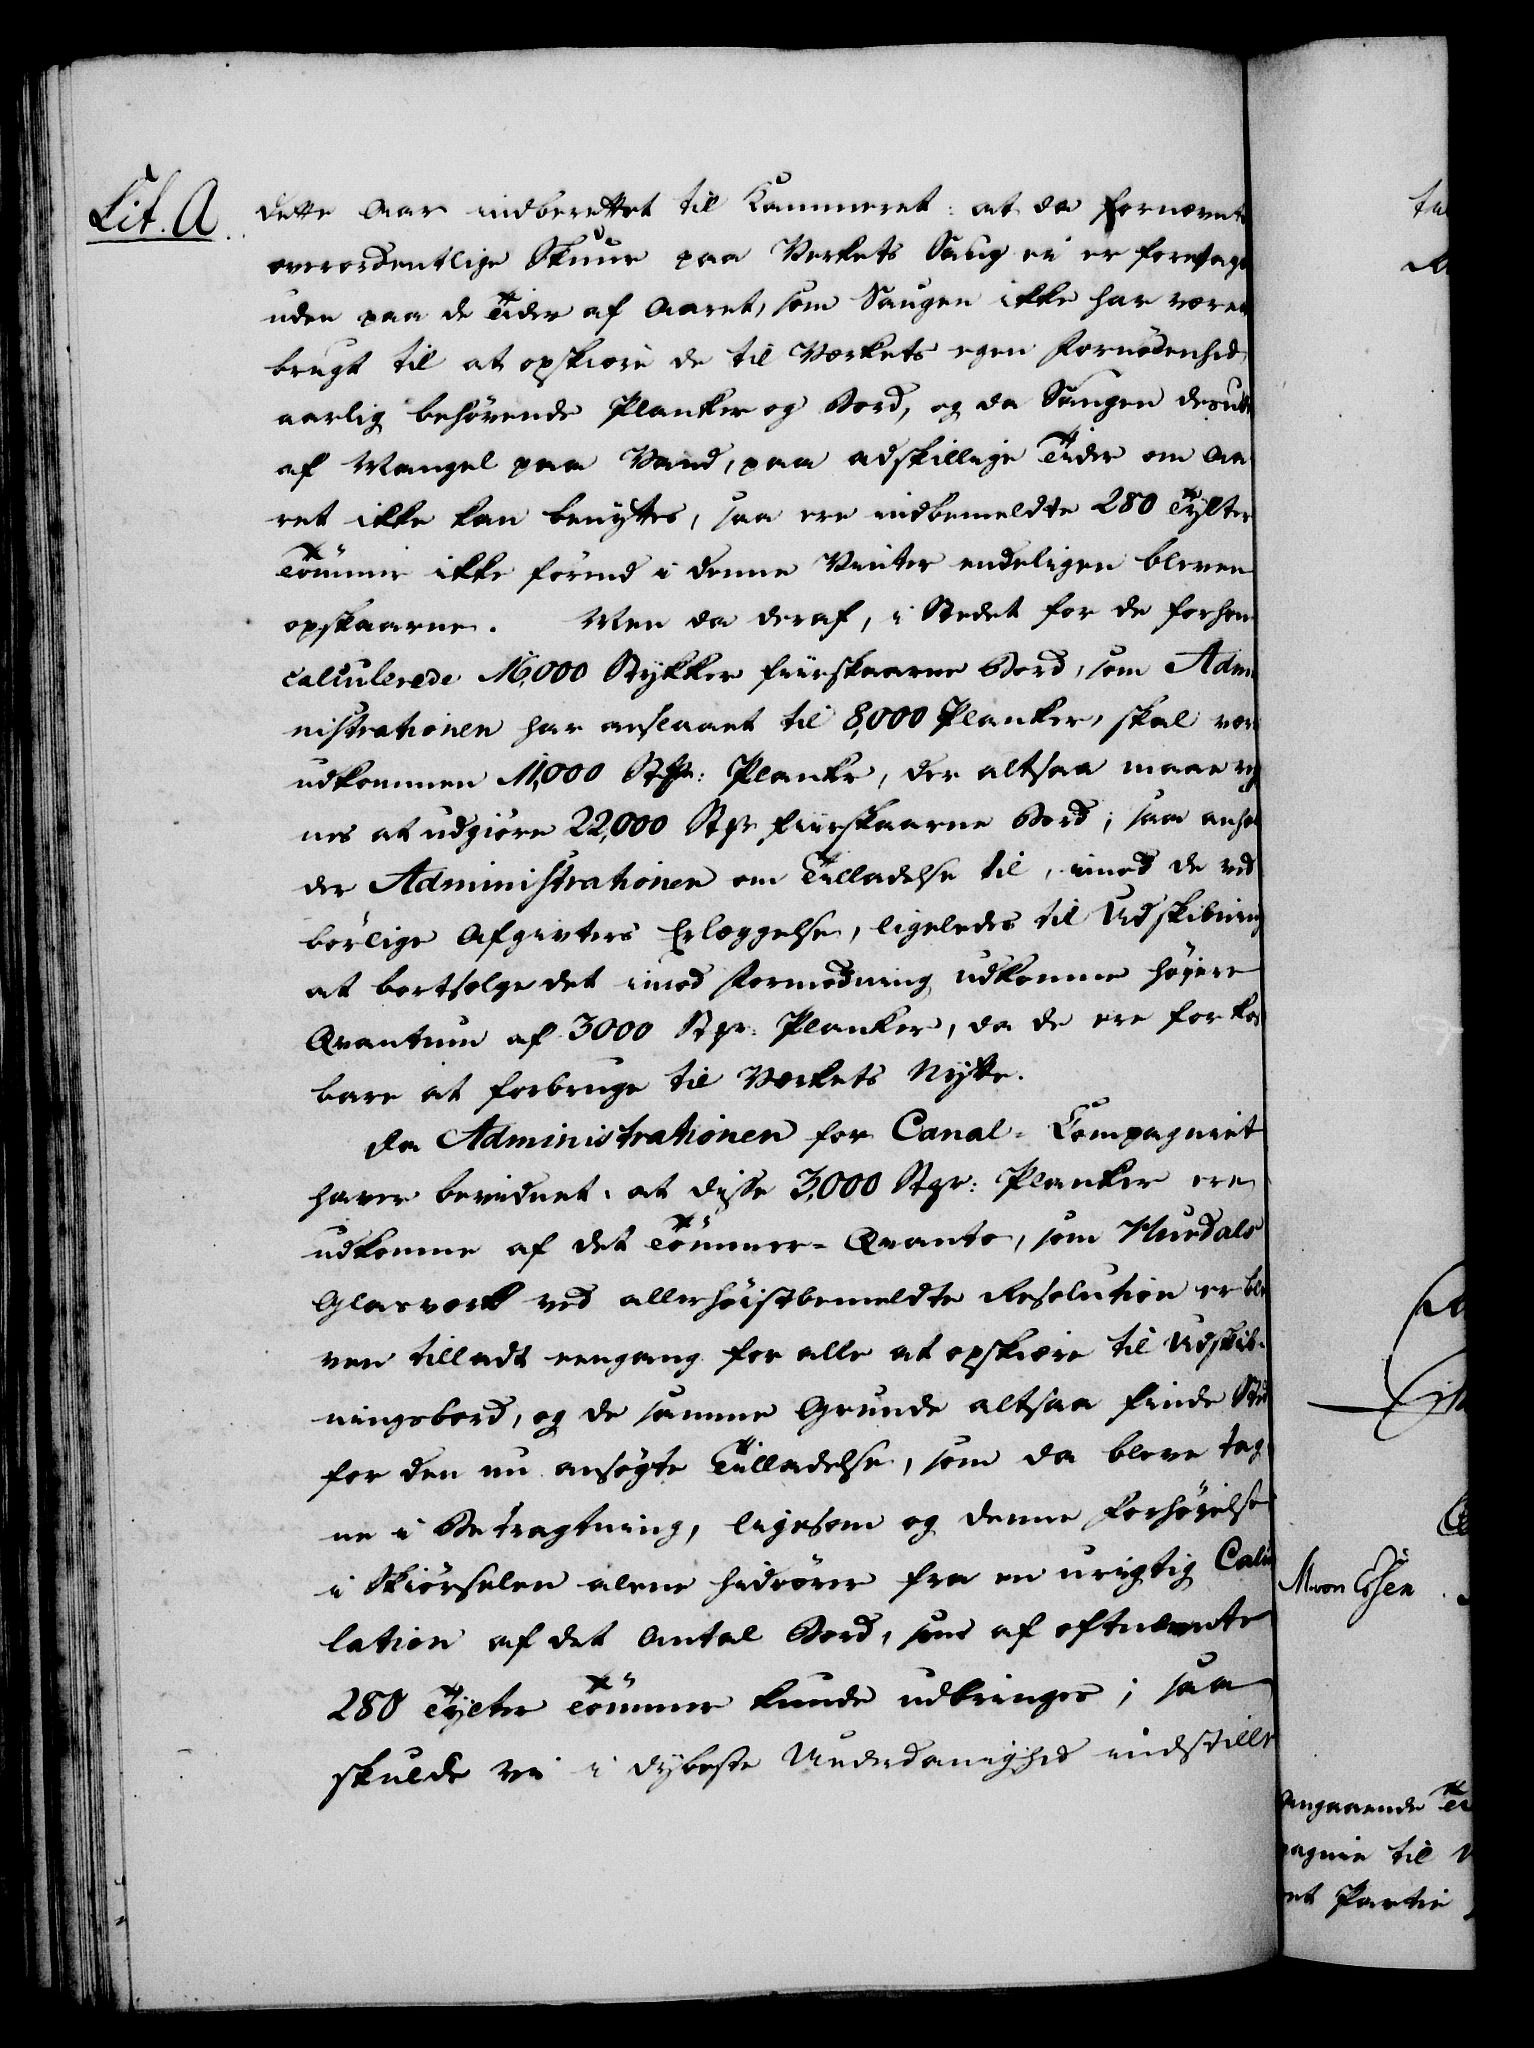 Lit. A.
dette Aar indberettet til Kammeret: at da fornævnte
overordentlige Skuur paa Verkets Saug ei er foretage
uden paa de Tider af Aaret, som Saugen ikke har været
brugt til at opskiære de til Værkets egen Fornødenhed
aarlig behøvende Planker og Bord, og da Saugen desude
af Mangel paa Vand, paa adskillige Tider om Aa
ret ikke kan benyttes, saa ere indbemeldte 280 Tylter
Tømmer ikke førend i denne Vinter endeligen bleven
opskaarne. Men da deraf, i Stedet for de forhen
calculerede 16,000 Stykker fiirskaarne Bord, som Admi
nistrationen har anslaaet til 8,000 Planker, skal være
udkommen 11,000 Stkr: Planke, der altsaa maae reg
nes at udgiøre 22,000 Stkr fiirskaarne Bord; saa anhol
der Administrationen om Tilladelse til, imod de ved
børlige Afgivters Erlæggelse, ligeledes til Udskibning
at bortsælge det imod Formodning udkomme høyere
Qvantum af 3000 Stkr. Planker, da de ere for kost
bare at forbruge til Værkets Nytte.
Da Administrationen for Canal-Compagniet
haver bevidnet, at disse 3,000 Stkr: Planker ere
udkomme af det Tømmer-Qvanto, som Hurdals
Glasværk ved allerhøistbemeldte Resolution er ble
ven tilladt eengang for alle at opskiære til Udskib-
ningsbord, og de samme Grunde altsaa finde Sted
for den nu ansøgte Tilladelse, som da bleve tag
ne i Betragtning, ligesom og denne Forhøyelse
i Skiørselen alene hidrører fra en urigtig Calcu
lation af det Antal Bord, som af oftnævnte
280 Tylter Tømmer kunde udbringes; saa
skulde vi i dybeste Underdanighed indstille
M. von Essen
Angaaende
pagnie til
et Partie